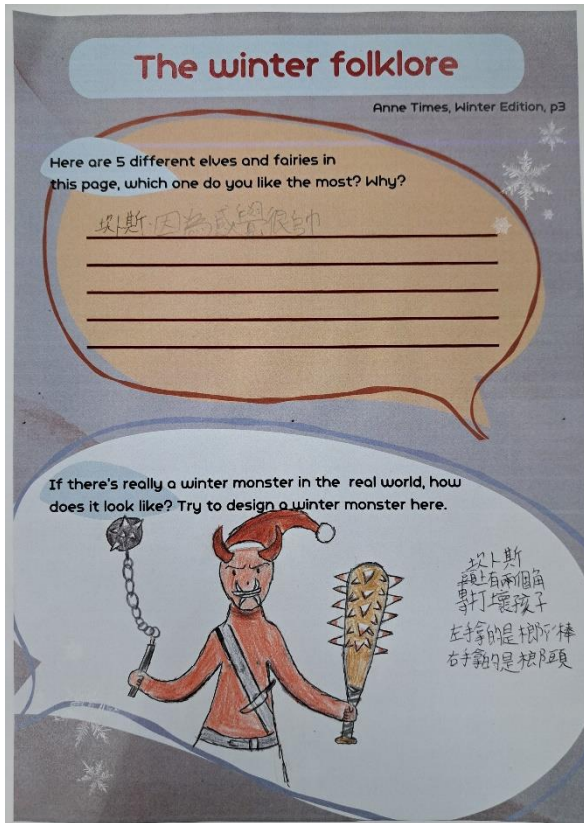 The winter folklore
Anne Times, Winter Edition, p3
Here are 5 different elves and fairies in
this page, which one do you like the most? Why?
坎卜斯.因為感覺很帥
If there's really a winter monster in the real world, how
does it look like? Try to design a winter monster here.
坎卜斯
頭上有兩個角
專打壞孩子
左手拿的是棒
右手拿的是頭